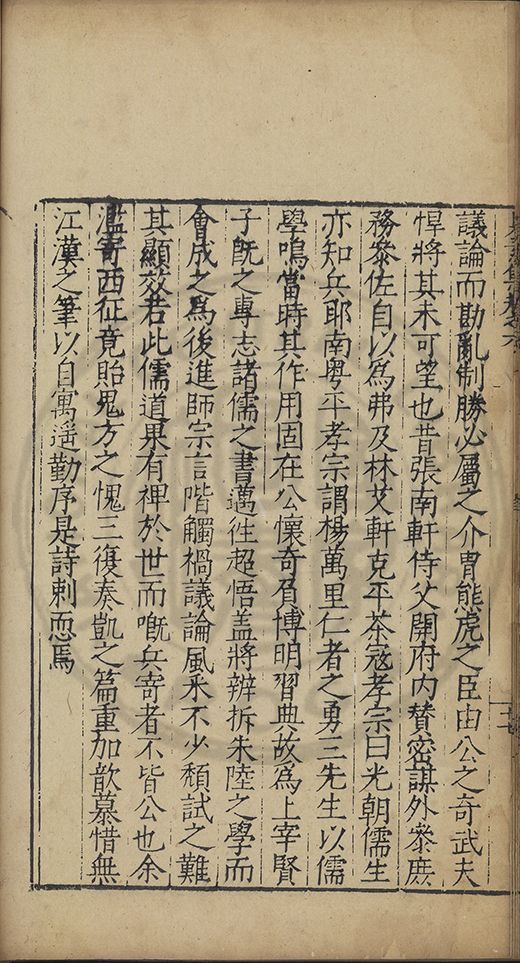 議論而勘亂制勝必屬之介胄熊虎之臣由公之奇武夫
悍將其未可望也昔張南軒侍父開府内賛密謀外叅庶
務叅佐自以爲弗及林艾軒克平茶寇孝宗曰光朝儒生
亦知兵耶南粤平孝宗謂楊萬里仁者之勇三先生以儒
學鳴當時其作用固在公懷竒負博明習典故爲上宰賢
子旣之專志諸儒之書邁徃超悟盖將辨拆朱陸之學而
會成之爲後進師宗言階觸禍議論風采不少頽試之難
其顯效若此儒道果有裨於世而嘅兵寄者不皆公也余
濫寄西征竟貽鬼方之愧三復奏凱之篇重加歆慕惜無
江漢之筆以自寓遥勤序是詩刺恧焉